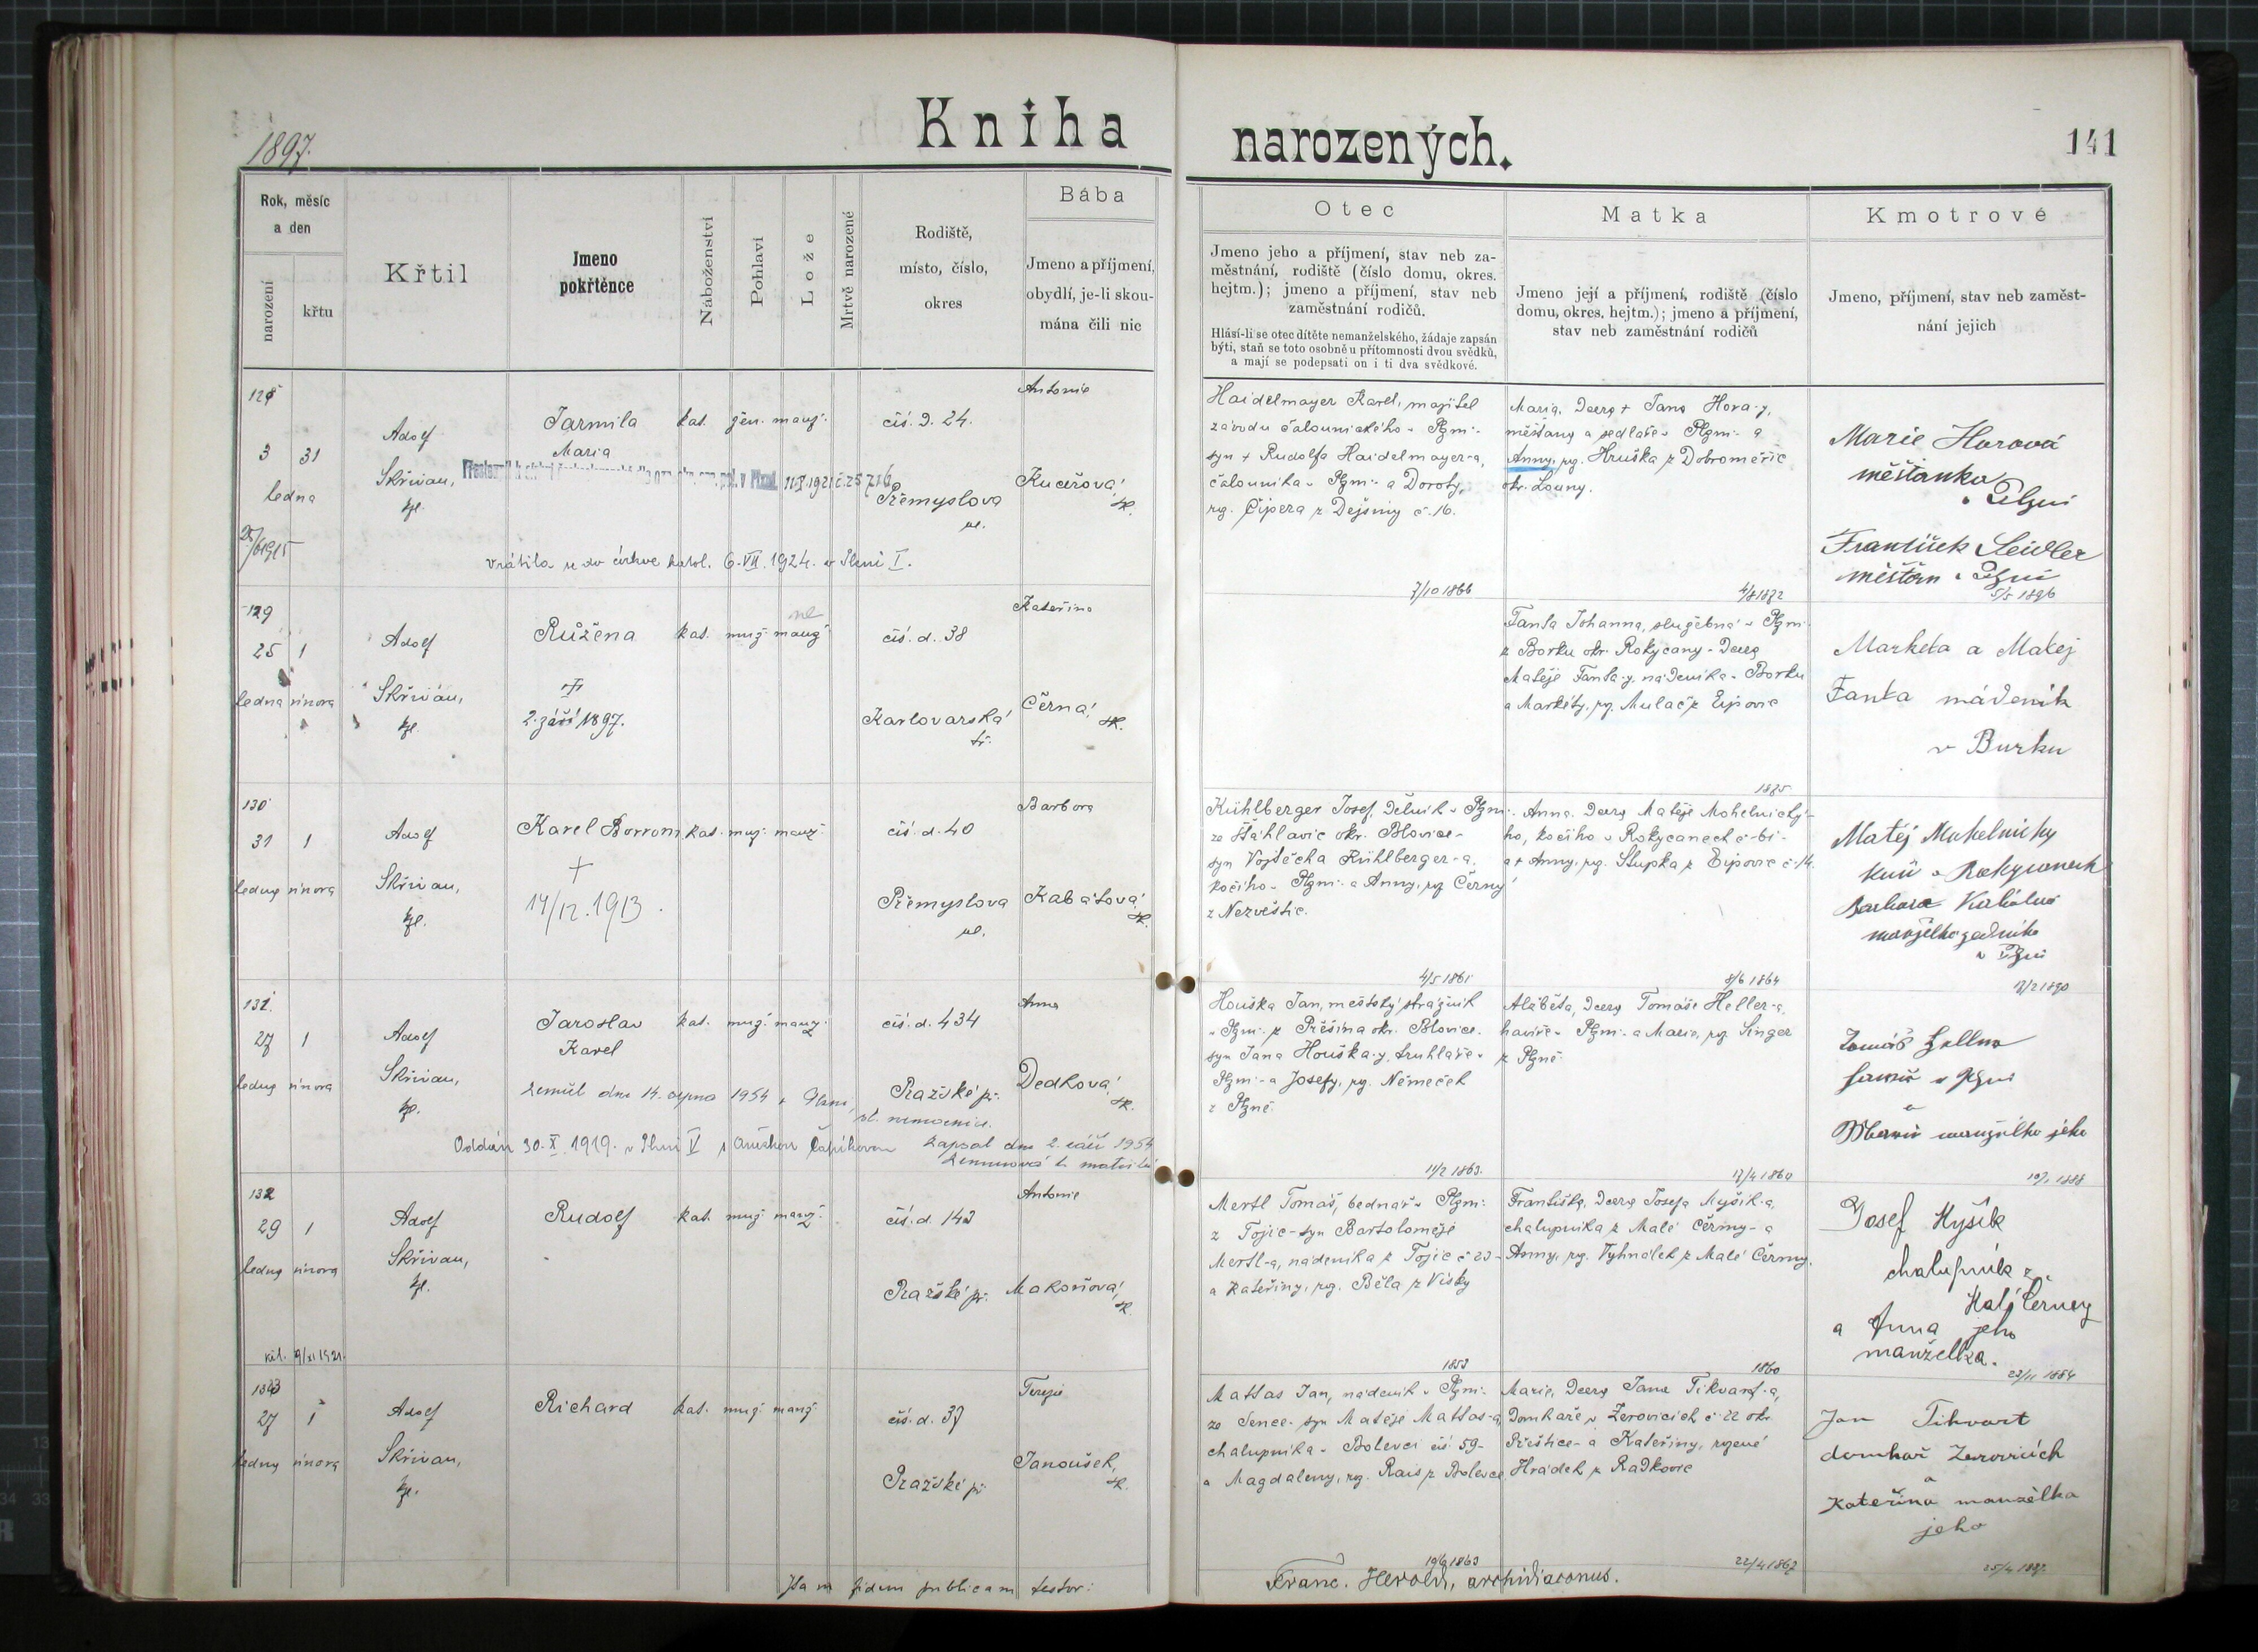 1897.
Kniha narozených.
141
Rok, měsíc
a den
narození
křtu
Křtil
Jmeno
pokřtěnce
Náboženství
Pohlaví
Lože
Mrtvě narozené
Rodiště,
místo, číslo,
okres
Bába
Jmeno a příjmení,
obydlí, je-li skou-
mána čili nic
Otec
Jmeno jeho a příjmení, stav neb za-
městnání, rodiště (číslo domu, okres.
hejtm.); jmeno a příjmení, stav neb
zaměstnání rodičů.
Hlásí-li se otec dítěte nemanželského, žádaje zapsán
býti, staň se toto osobně u přítomnosti dvou svědků,
a mají se podepsati on i ti dva svědkové.
Matka
Jmeno její a příjmení, rodiště (číslo
domu, okres. hejtm.); jmeno a příjmení,
stav neb zaměstnání rodičů
Kmotrové
Jmeno, příjmení, stav neb zaměst-
nání jejich
128
3 31
ledna
Adolf
Skřivan,
kpl.
Jarmila
Maria
kat. žen. manž.
čís. d. 24.
Přemyslova
ul.
Antonie
Kučerová,
zk.
vrátila se do církve katol. 6. VII. 1924. v Plzni I.
Haidelmayer Karel, majitel
závodu čalounického v Plzni -
syn + Rudolfa Haidelmayer-a,
čalouníka v Plzni - a Doroty,
roz. Čipera z Dejšiny č. 16.
7/10 1866
Maria, dcera + Jana Hora-y,
měšťana a sedláře v Plzni - a
Anny, roz. Hruška z Dobroměřic
okr. Louny.
4/8 1872
Marie Horová
měšťanka
v Plzni
František Seidler
měšťan v Plzni
5/5 1896
129
25 1
ledna února
Adolf
Skřivan,
kpl.
Růžena
2. září 1897.
kat. muž. manž.
ne
čís. d. 38
Karlovarská
tř.
Kateřina
Černá,
zk.
Fanta Johanna, služebná v Plzni
z Borku okr. Rokycany - dcera
Matěje Fanta-y, nádeníka v Borku
a Markéty, roz. Mulač z Ejpovic
1875
Marketa a Matej
Fanta nádeník
v Burku
130
31 1
ledna února
Adolf
Skřivan,
kpl.
Karel Borrom.
+
14/12. 1913.
kat. muž. manž.
čís. d. 40
Přemyslova
ul.
Barbora
Kabátová,
zk.
Kühlberger Josef, dělník v Plzni -
ze Štáhlavic okr. Blovice -
syn Vojtěcha Kühlberger-a,
kočího v Plzni - a Anny, roz. Černý
z Nezvěstic.
4/5 1861
Anna, dcera Matěje Mohelnický-
ho, kočího v Rokycanech č. 61 -
a + Anny, roz. Slupka z Ejpovic č. 14.
8/6 1864
Matěj Mohelnický
kočí v Rokycanech
Barbora
v Plzni
131.
27 1
ledna února
Adolf
Skřivan,
kpl.
Jaroslav
Karel
kat. muž. manž.
čís. d. 434
Pražské př.
Anna
Dedková,
zk.
zemřel dne 14. srpna 1954 v Plzni,
st. nemocnice.
Oddán 30. X. 1919. v Plzni V s Aničkou Čapíkovou
Zapsal dne 2. září 1954
Houška Jan, městský strážník
v Plzni z Přešína okr. Blovice -
syn Jana Houška-y, truhláře v
Plzni - a Josefy, roz. Němeček
z Plzně
11/2 1863.
Alžběta, dcera Tomáše Heller-a,
havíře v Plzni - a Marie, roz. Singer
z Plzně
17/4 1860
Tomáš Heller
havíř v Plzni
a
Marie manželka jeho
132
29 1
ledna února
Adolf
Skřivan,
kpl.
Rudolf
kat. muž. manž.
čís. d. 143
Pražské př.
Antonie
Makoňová,
zk.
9/XI 1921.
Mertl Tomáš, bednář v Plzni
z Tojic - syn Bartoloměje
Mertl-a, nádeníka z Tojic č. 20 -
a Kateřiny, roz. Běla z Vísky
1853
Františka, dcera Josefa Myšík-a,
chalupníka z Malé Černy - a
Anny, roz. Vyhnálek z Malé Černy.
1860
Josef Myšík
chalupník z
Malé Černy
a Anna jeho
manželka.
23/11 1884
133
27 1
ledna února
Adolf
Skřivan,
kpl.
Richard
kat. muž. manž.
čís. d. 37
Pražské př.
Terezie
Janoušek,
zk.
Mattas Jan, nádeník v Plzni -
ze Sence - syn Matěje Mattas-a,
chalupníka v Bolevci čís. 59 -
a Magdaleny, roz. Rais z Bolevce
19/6 1863
Marie, dcera Jana Tikvart-a,
domkáře v Žerovicích č. 22 okr.
Přeštice - a Kateřiny, rozené
Hrádek z Radkovic
22/4 1867
Jan Tikvart
domkař Žerovicích
a
Kateřina manželka
jeho
Ita in fidem publicam testor:
Franc. Herold, archidiaconus.